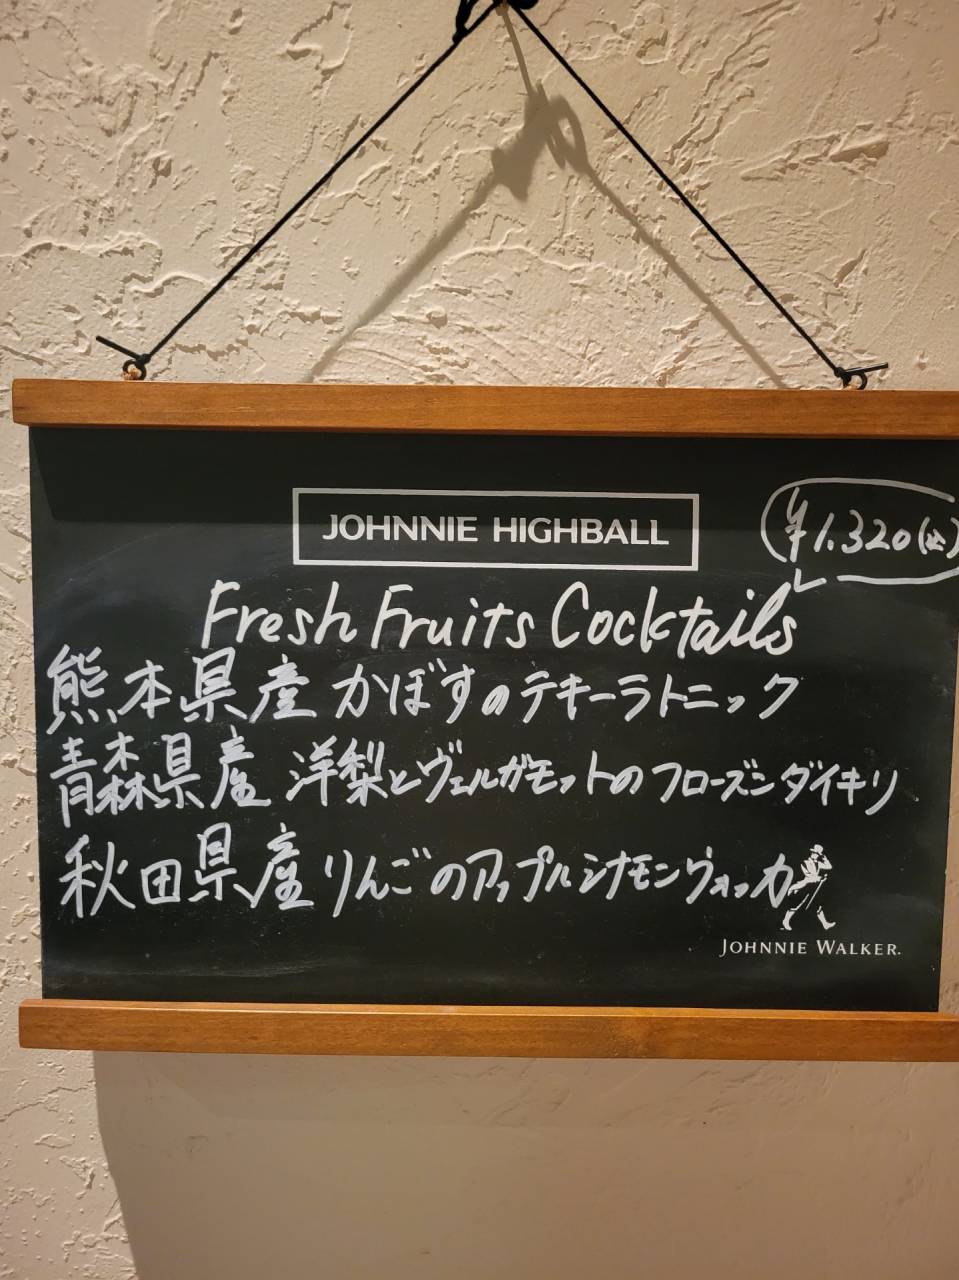 JOHNNIE HIGHBALL
¥1.320(込)
Fresh Fruits Cocktails
熊本県産 かぼすのテキーラトニック
青森県産 洋梨とヴェルガモットのフローズンダイキリ
秋田県産 りんごのアップルシナモンウォッカ
JOHNNIE WALKER.